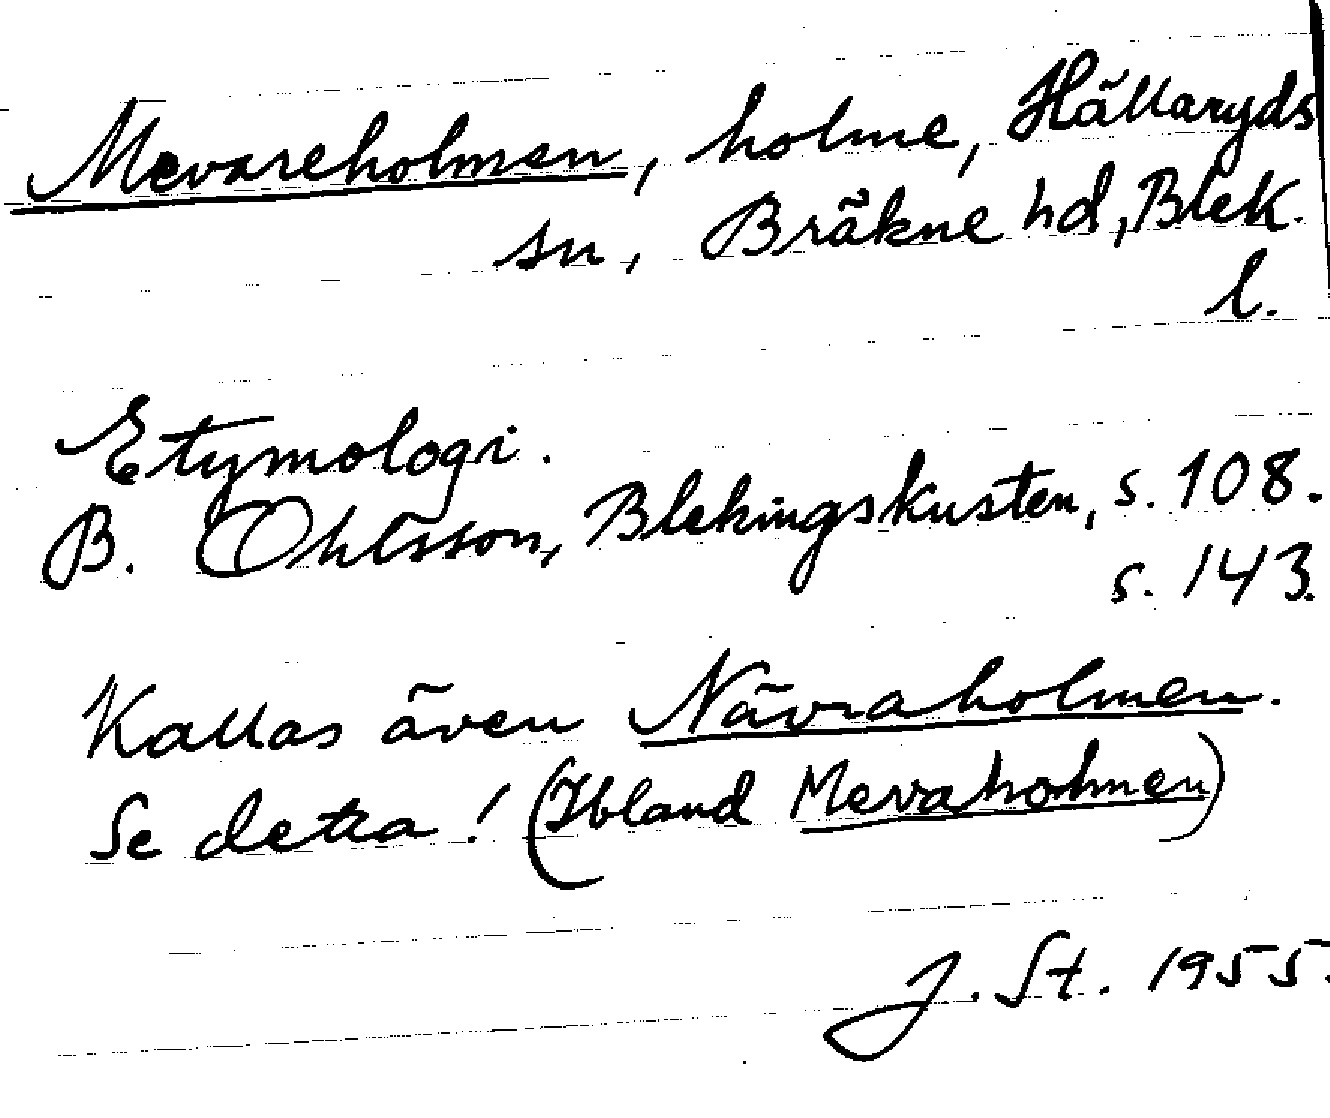 Mevareholmen, holme, Hällaryds
sn, Bräkne hd, Blek.
l.
Etymologi.
B. Ohlsson, Blekingskusten, s. 108.
s. 143.
Kallas även Nävraholmen.
Se detta! (Ibland Mervaholmen)
J. St. 1955.